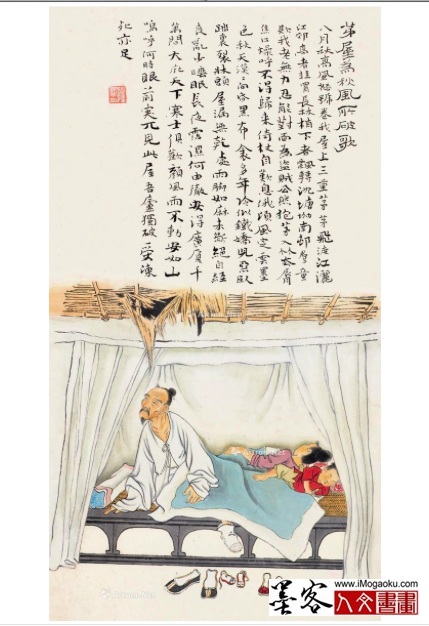 茅屋為秋風所破歌
八月秋高風怒號卷我屋上三重茅茅飛渡江灑
江郊高者挂罥長林梢下者飄轉沉塘坳南邨群童
欺我老無力忍能對面為盜賊公然抱茅入竹去脣
焦口燥呼不得歸來倚杖自歎息俄頃風定雲墨
色秋天漠向昏黑布衾多年冷似鐵嬌兒惡臥
踏裏裂牀頭屋漏無乾處雨腳如麻未斷絕自經
喪亂少睡眠長夜霑濕何由徹安得廣廈千
萬間大庇天下寒士俱歡顏風雨不動安如山
嗚呼何時眼前突兀見此屋吾廬獨破受凍
死亦足
www.iMogaoku.com
墨客